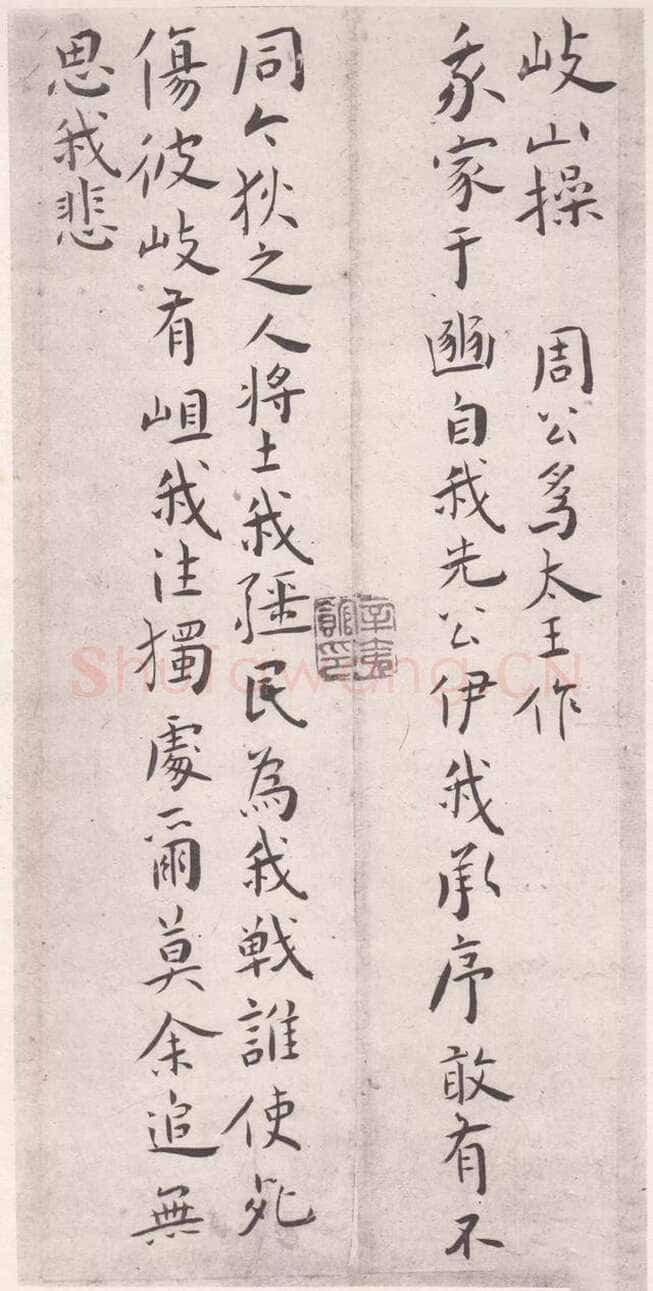 岐山操　周公爲太王作
我家于豳自我先公伊我承序敢有不
同今狄之人将土我疆民為我戦誰使死
傷彼岐有岨我往獨處爾莫余追無
思我悲
辛夷館印
Shufawang.CN